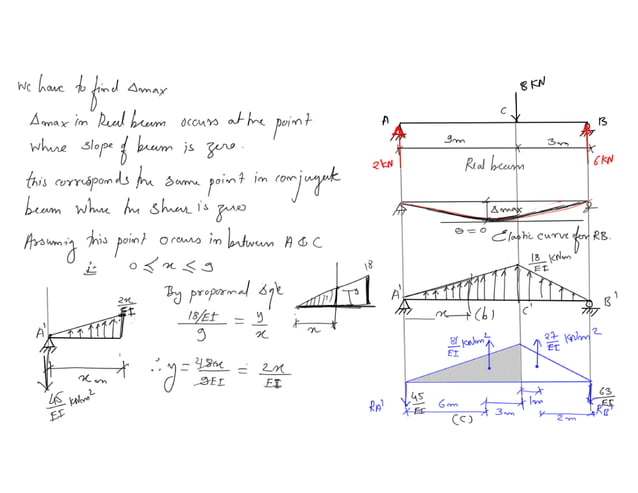 We have to find Δmax
Δmax in Real beam occurs at the point
where slope of beam is zero.
this corresponds the same point in conjugate
beam where the shear is zero
Assuming this point occurs in between A & C
i.e. 0 ≤ x ≤ 9
By proportional Δgle
18/EI / 9 = y / x
∴ y = 18x / 9EI = 2x / EI
A'
2x / EI
x m
45 / EI KNm²
18
y
x
8 KN
A
C
B
9m
3m
2KN
Real beam
6KN
Δmax
θ = 0
Elastic curve for RB.
18 / EI KNm
A'
B'
x
(b)
C'
81 / EI KNm²
27 / EI KNm²
RA'
45 / EI
6m
3m
1m
2m
63 / EI
RB'
(C)